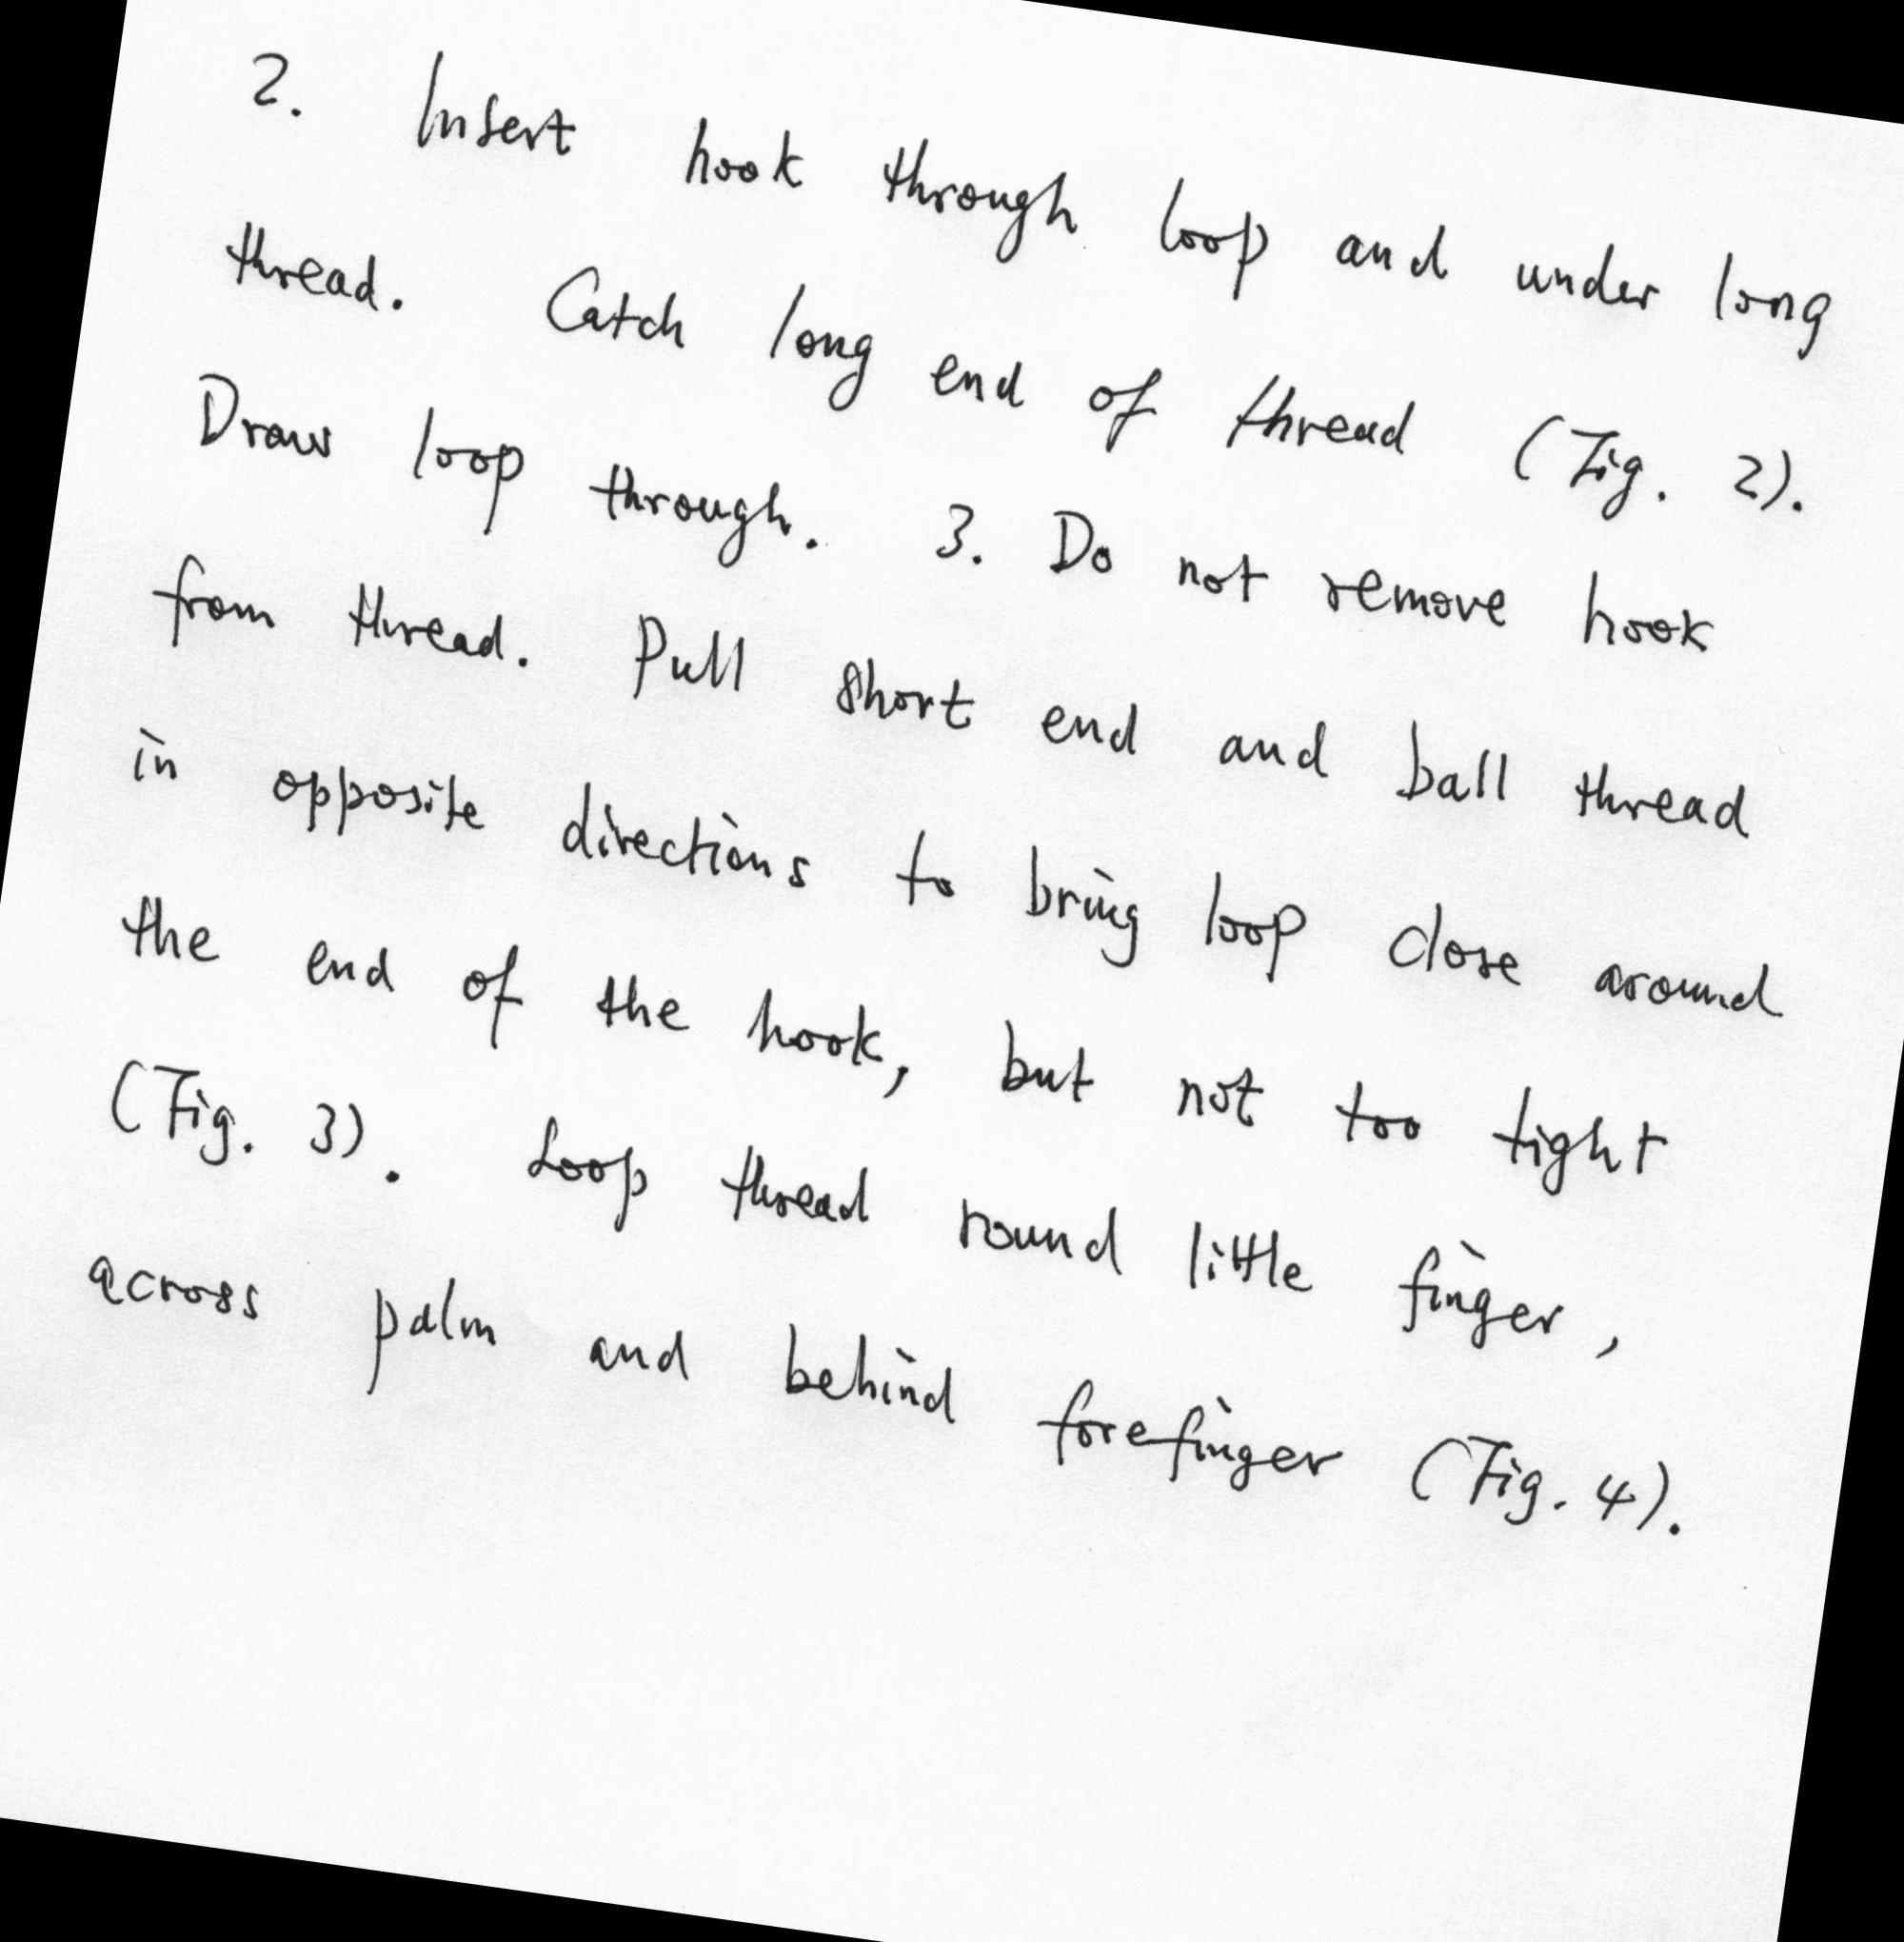 2. Insert hook through loop and under long
thread. Catch long end of thread (Fig. 2).
Draw loop through. 3. Do not remove hook
from thread. Pull short end and ball thread
in opposite directions to bring loop close around
the end of the hook, but not too tight
(Fig. 3). Loop thread round little finger,
across palm and behind forefinger (Fig. 4).